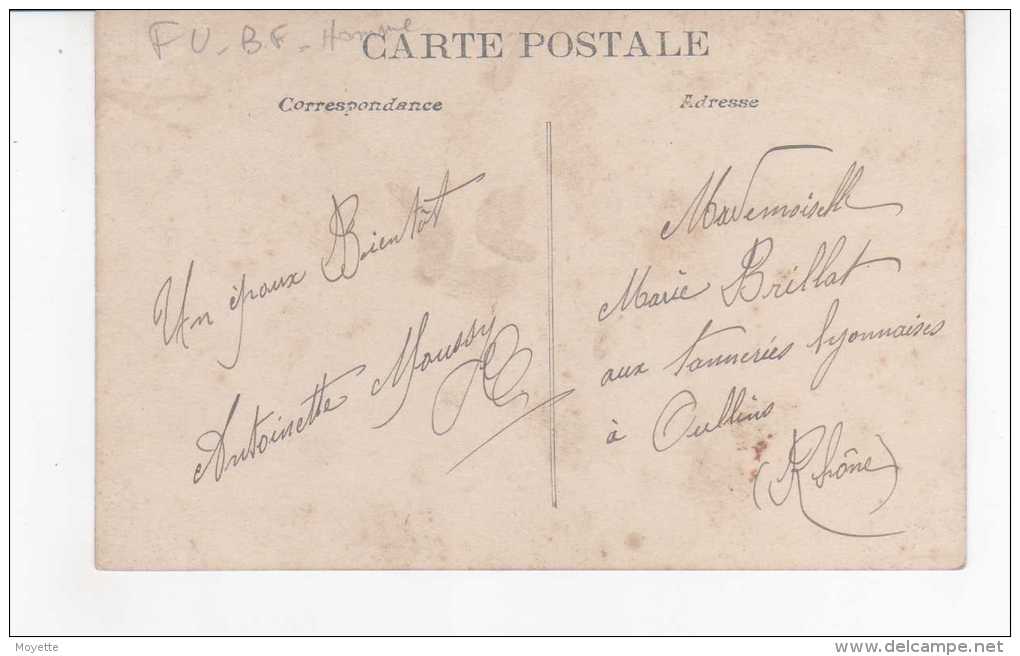 FU-B.F-
CARTE POSTALE
Correspondance
Adresse
Un époux Bientôt
Antoinette Moussy
Mademoiselle
Marie Brillat
aux tanneries lyonnaises
à Oullins
(Rhône)
Moyette
www.delcampe.net